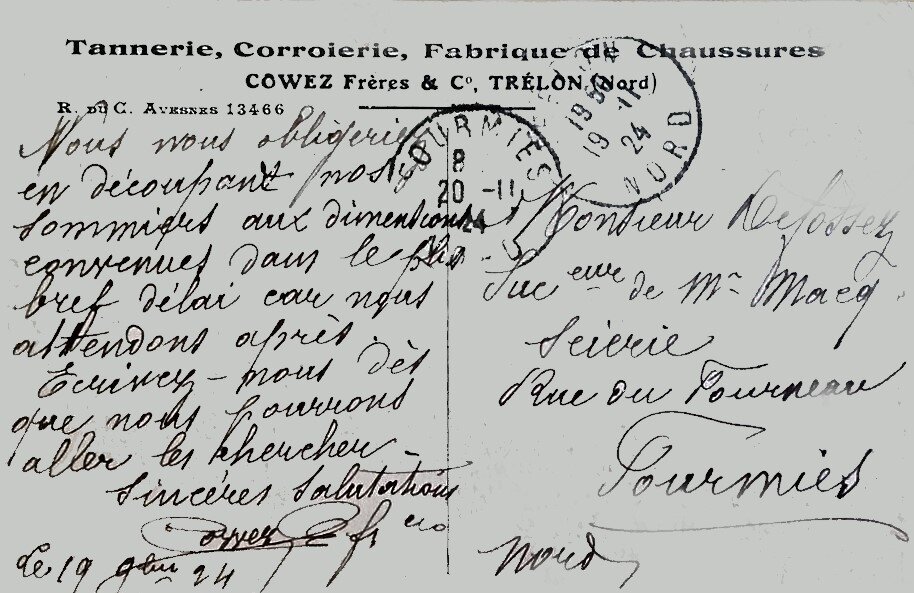 Tannerie, Corroierie, Fabrique de Chaussures
COWEZ Frères & Cº, TRÉLON (Nord)
R. DU C. AVESNES 13466
Nous nous obligeriez
en découpant nos
sommiers aux dimentions
convenues dans le plus
bref délai car nous
attendons après.
Ecrivez-nous dès
que nous pourrons
aller les chercher.
Sincères Salutations
Cowez frères
Le 19 9bre 24
FOURMIES
8
20 -11
24
NORD
19 30
19 -11
24
Monsieur Defossez
Suceur de Mr Macq
Scierie
Rue du Fourneau
Fourmies
Nord